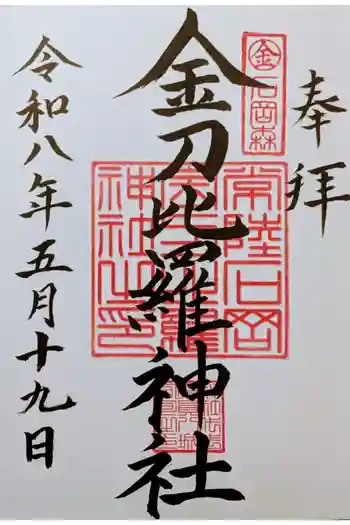 奉拝
㊎石岡森
金刀比羅神社
常陸石岡
金刀比羅
神社之印
令和八年五月十九日